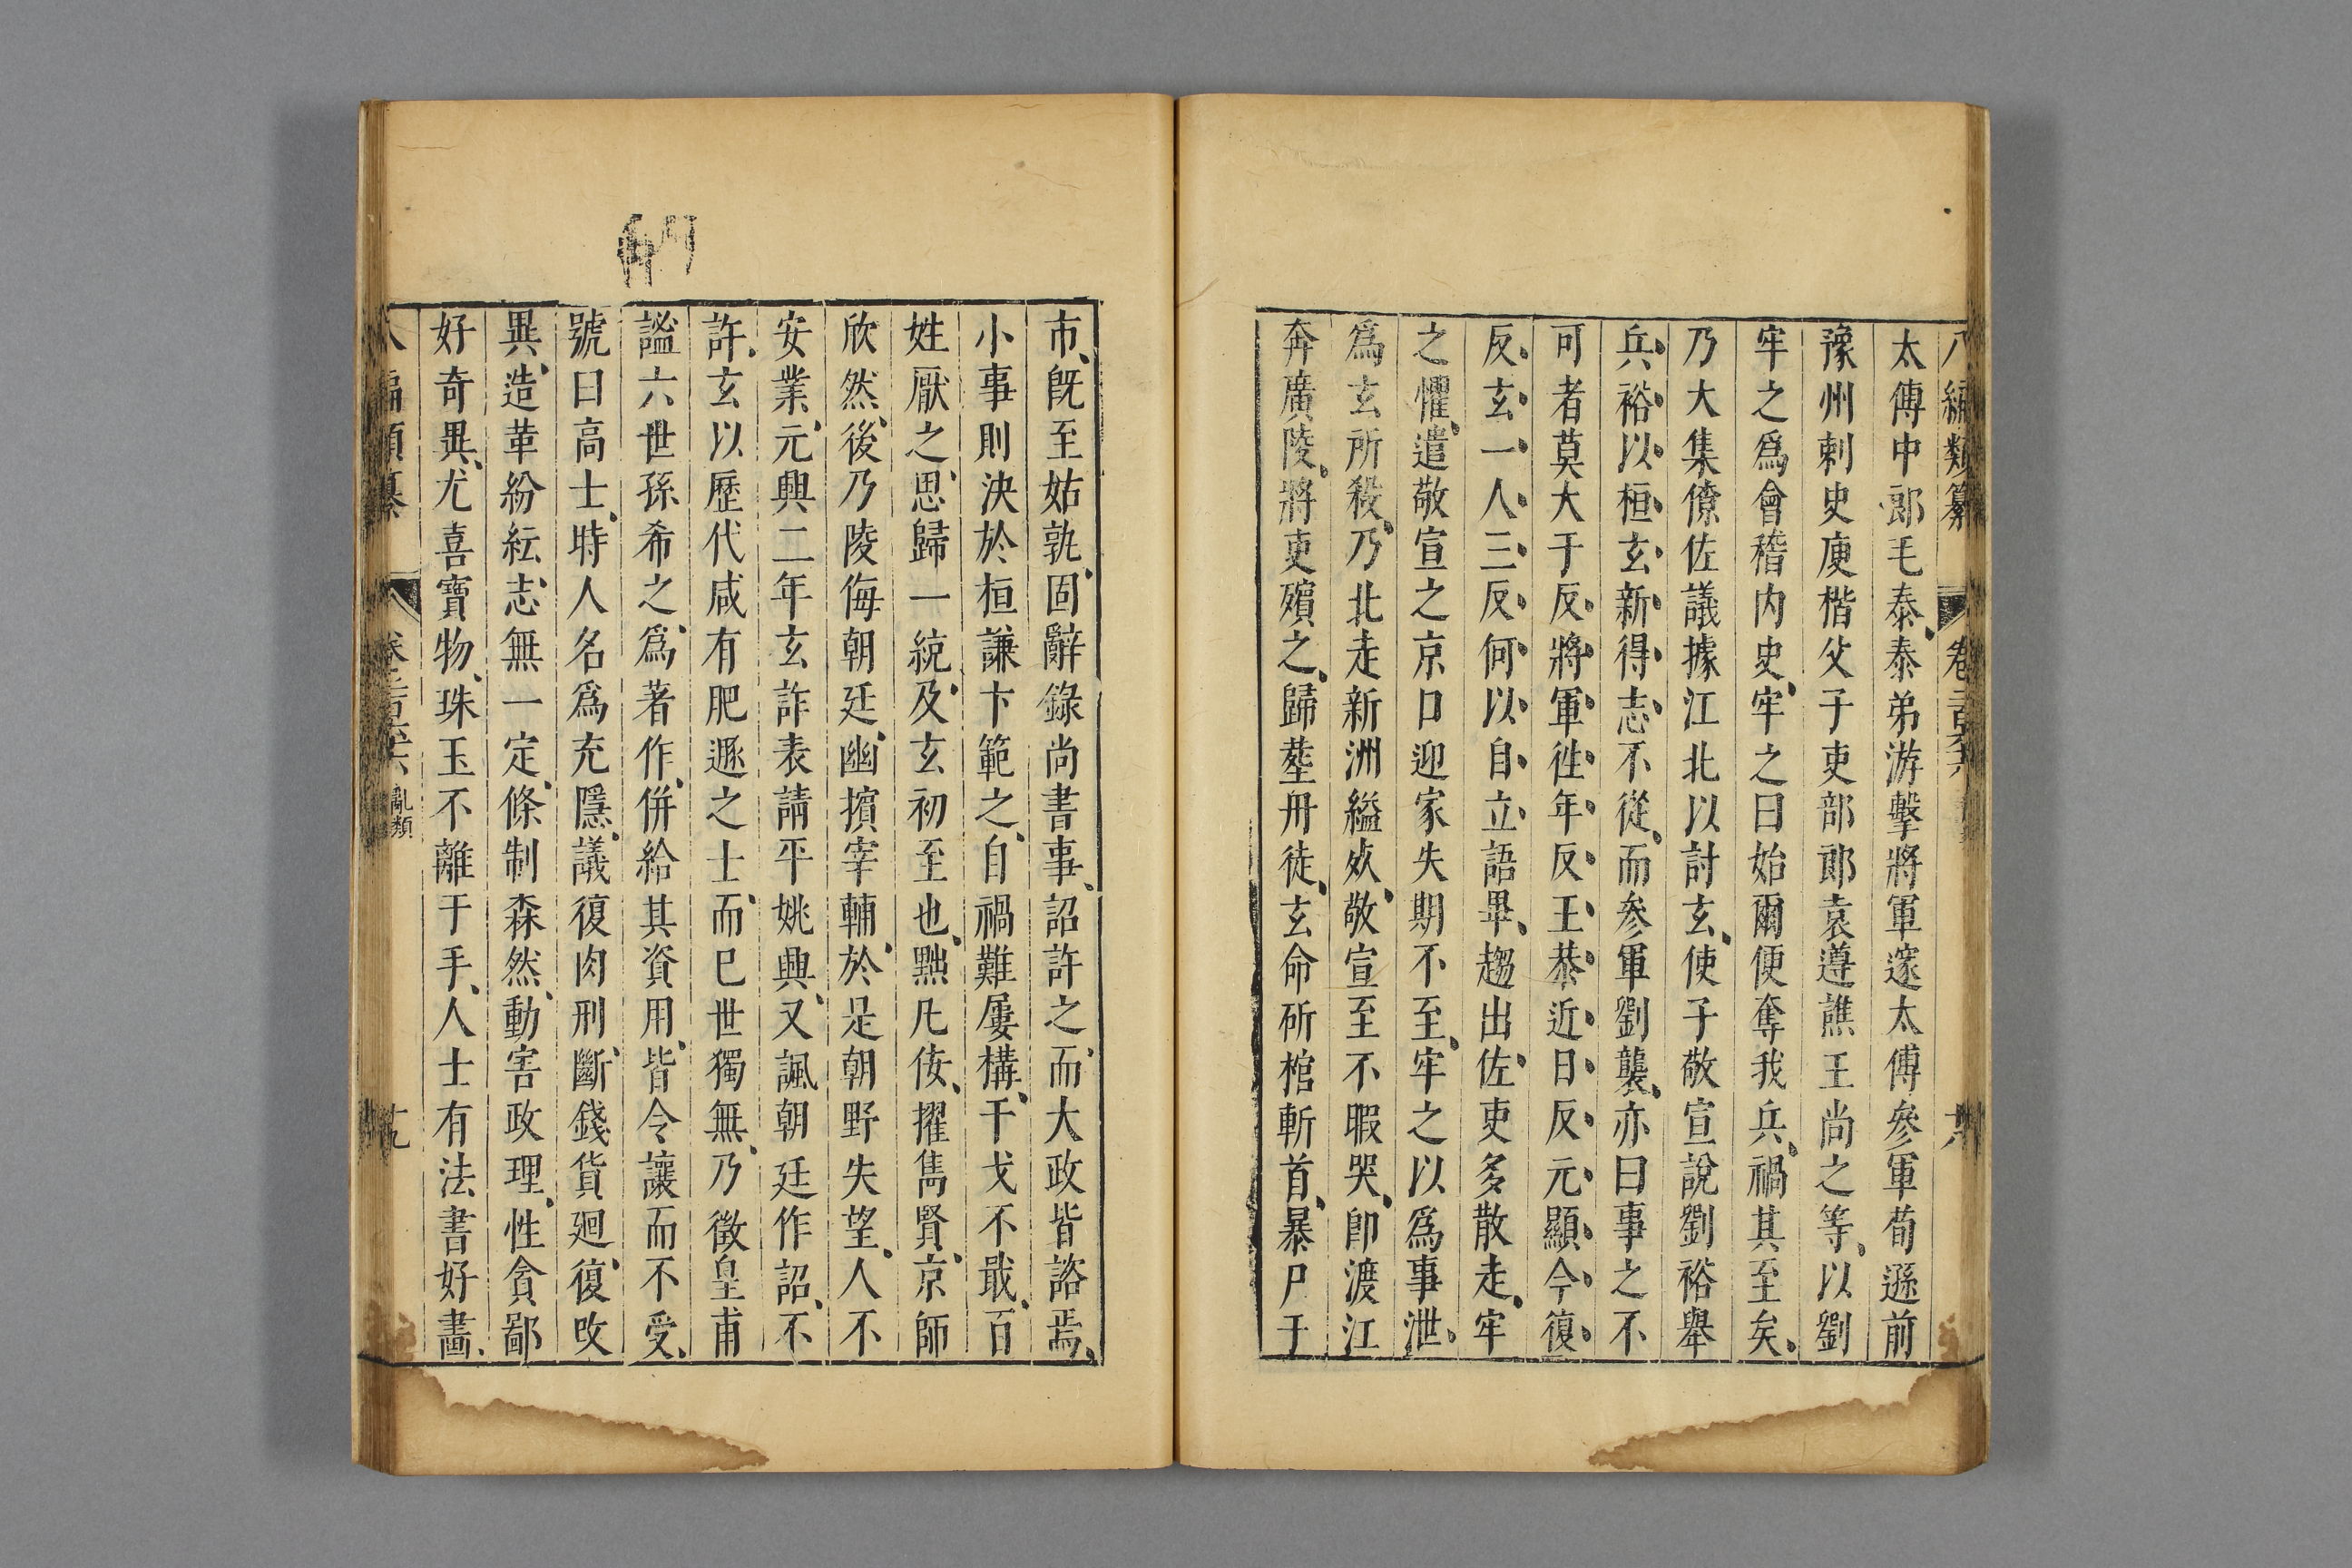 八編類纂
太傅中郎毛泰泰弟游擊將軍邃太傅參軍荀遜前
豫州刺史庾楷父子吏部郎袁遵譙王尚之等以劉
牢之爲會稽内史牢之曰始爾便奪我兵禍其至矣
乃大集僚佐議據江北以討玄使子敬宣說劉裕舉
兵裕以桓玄新得志不從而参軍劉襲亦曰事之不
可者莫大于反將軍徃年反王恭近日反元顯今復
反玄一人三反何以自立語畢趨出佐吏多散走牢
之懼遣敬宣之京口迎家失期不至牢之以爲事泄
爲玄所殺乃北走新洲縊死敬宣至不暇哭卽渡江
奔廣陵將吏殯之歸塟丹徒玄命斫棺斬首暴尸于
市旣至姑孰固辭錄尚書事詔許之而大政皆諮焉
小事則決於桓謙卞範之自禍難屢構干戈不戢百
姓厭之思歸一統及玄初至也黜凡佞擢雋賢京師
欣然後乃陵侮朝廷幽擯宰輔於是朝野失望人不
安業元興二年玄詐表請平姚興又諷朝廷作詔不
許玄以歷代咸有肥遯之士而已世獨無乃徵皇甫
謐六世孫希之爲著作併給其資用皆令讓而不受
號曰高士時人名爲充隱議復肉刑斷錢貨廻復改
異造革紛紜志無一定條制森然動害政理性貪鄙
好奇異尤喜寶物珠玉不離于手人士有法書好畫
八編類纂
亂類
十九